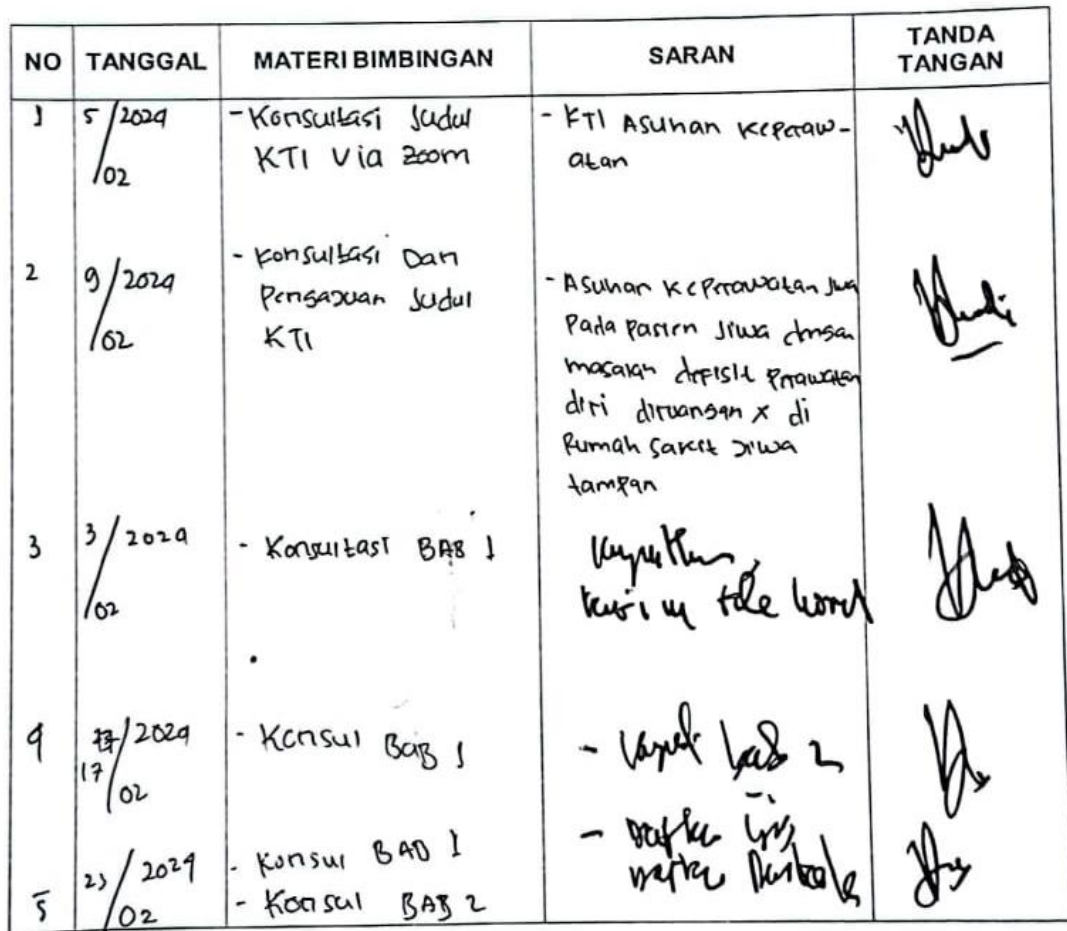 NO TANGGAL MATERI BIMBINGAN SARAN TANDA TANGAN
1 5/2024
/02
- Konsultasi Judul
KTI Via Zoom
- KTI Asuhan Keperaw-
atan
2 9/2024
/02
- Konsultasi Dan
Pengajuan Judul
KTI
- Asuhan Keperawatan Jiwa
Pada pasien Jiwa dengan
masalah defisit perawatan
diri diruangan X di
Rumah Sakit Jiwa
tampan
3 3/2024
/02
- Konsultasi BAB 1
file word
4 17/2024
/02
- Konsul BAB 1
- bab 2
5 23/2024
/02
- Konsul BAB 1
- Konsul BAB 2
- Daftar isi,
Daftar Pustaka